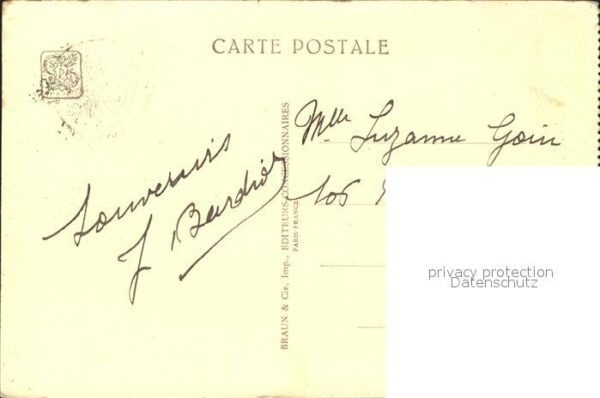 CARTE POSTALE
Souvenirs
J.
BRAUN & Cie, Imp., EDITEURS-CONCESSIONNAIRES
PARIS-FRANCE
Mlle Suzanne
106
privacy protection
Datenschutz